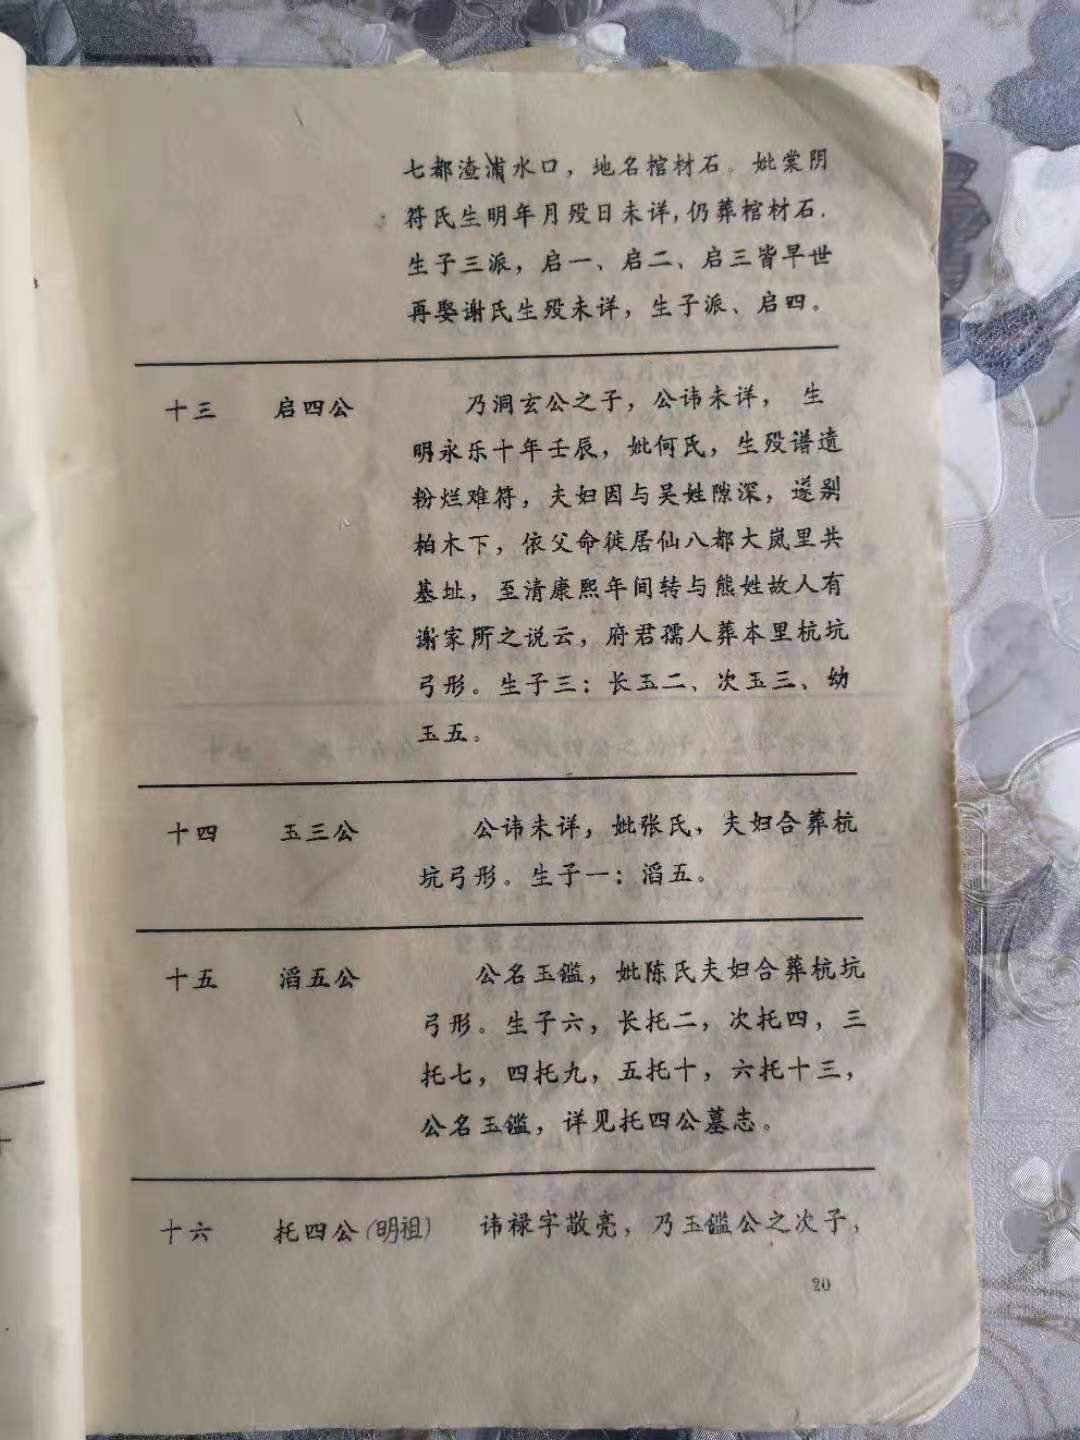 七都渣浦水口，地名棺材石。妣棠阴
符氏生明年月殁日未详，仍葬棺材石.
生子三派，启一、启二、启三皆早世
再娶谢氏生殁未详，生子派、启四。
十三 启四公 乃洞玄公之子，公讳未详， 生
明永乐十年壬辰，妣何氏，生殁谱遗
粉烂难符，夫妇因与吴姓隙深，遂别
柏木下，依父命徙居仙八都大岚里共
基址，至清康熙年间转与熊姓故人有
谢家所之说云，府君孺人葬本里杭坑
弓形。生子三：长玉二、次玉三、幼
玉五。
十四 玉三公 公讳未详，妣张氏，夫妇合葬杭
坑弓形。生子一：滔五。
十五 滔五公 公名玉鑑，妣陈氏夫妇合葬杭坑
弓形。生子六，长托二，次托四，三
托七，四托九，五托十，六托十三，
公名玉鑑，详见托四公墓志。
十六 托四公(明祖) 讳禄字敬亮，乃玉鑑公之次子，
20